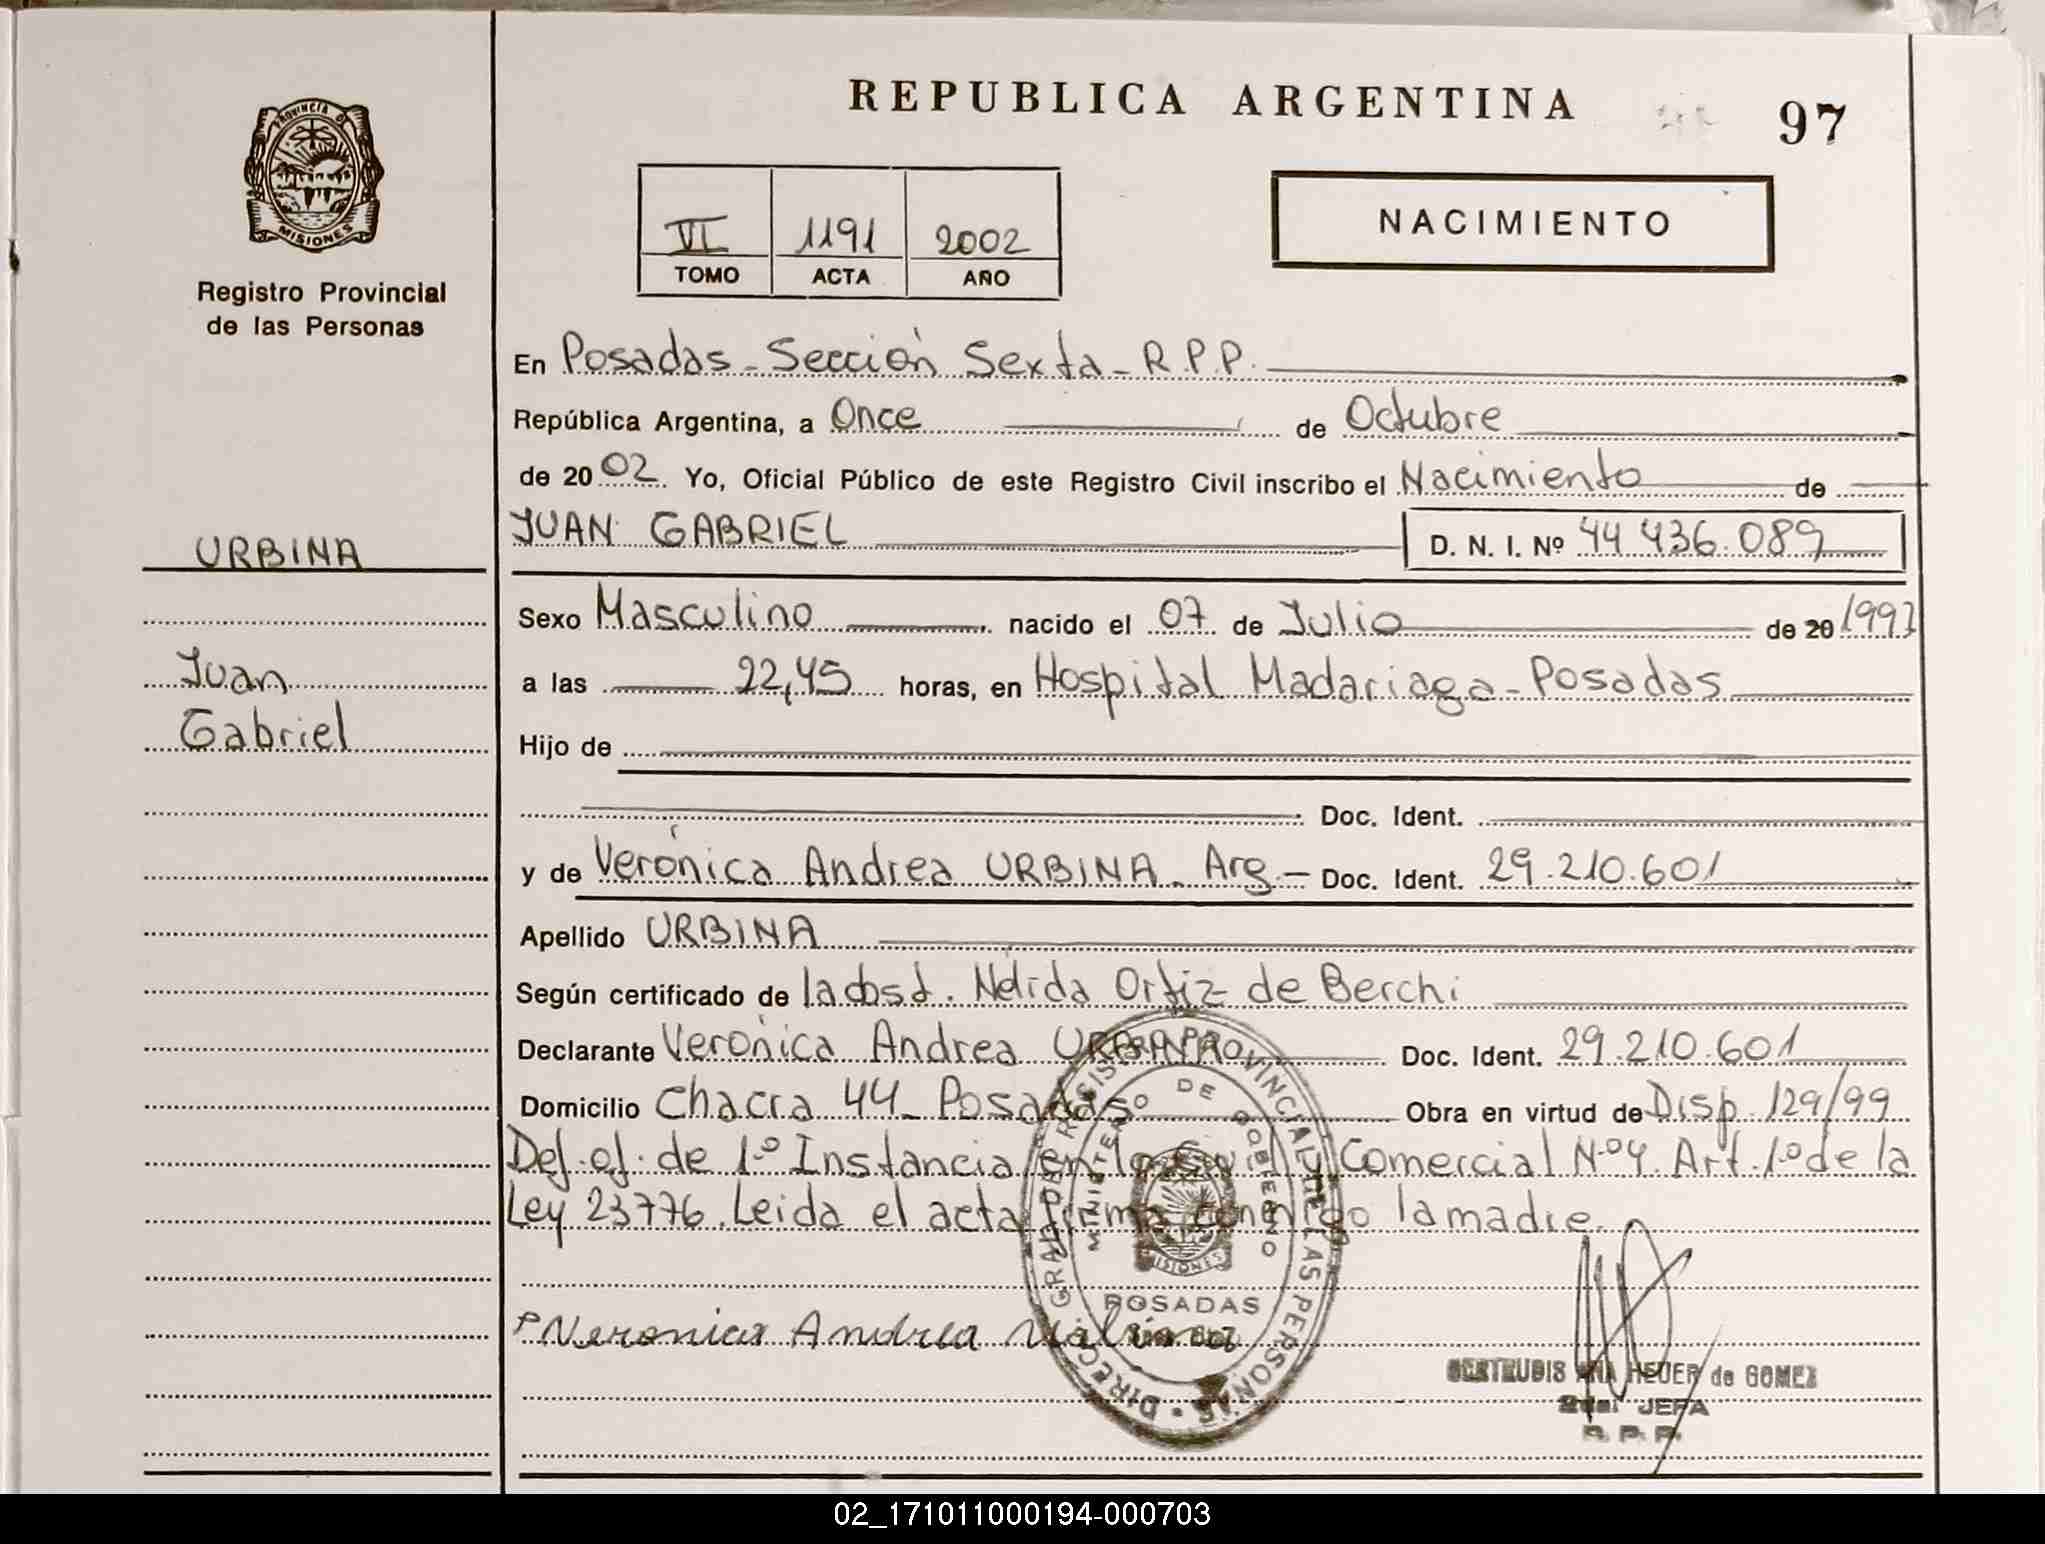 REPUBLICA ARGENTINA
97
PROVINCIA DE
MISIONES
Registro Provincial
de las Personas
VI 1191 2002
TOMO ACTA AÑO
NACIMIENTO
En Posadas - Sección Sexta - R.P.P.
República Argentina, a Once de Octubre
de 2002. Yo, Oficial Público de este Registro Civil inscribo el Nacimiento de
URBINA
JUAN GABRIEL D. N. I. Nº 44 436.089
Sexo Masculino nacido el 07 de Julio de 20 1997
Juan
a las 22,45 horas, en Hospital Madariaga - Posadas
Gabriel
Hijo de
Doc. Ident.
y de Verónica Andrea URBINA - Arg - Doc. Ident. 29.210.601
Apellido URBINA
Según certificado de la obst. Nélida Ortiz de Berchi
Declarante Verónica Andrea URBINA Doc. Ident. 29.210.601
Domicilio Chacra 44 - Posadas. Obra en virtud de Disp. 129/99
Def. of. de 1º Instancia en lo Civil y Comercial Nº 4. Art. 1º de la
Ley 23776. Leida el acta firma conmigo la madre.
DIRECC. GRAL DE REGISTRO PROVINCIAL DE LAS PERSONAS
MINISTERIO DE GOBIERNO
MISIONES
POSADAS
Veronica Andrea
GERTRUDIS ANA HEUER de GOMEZ
2da. JEFA
R. P. P.
02_171011000194-000703